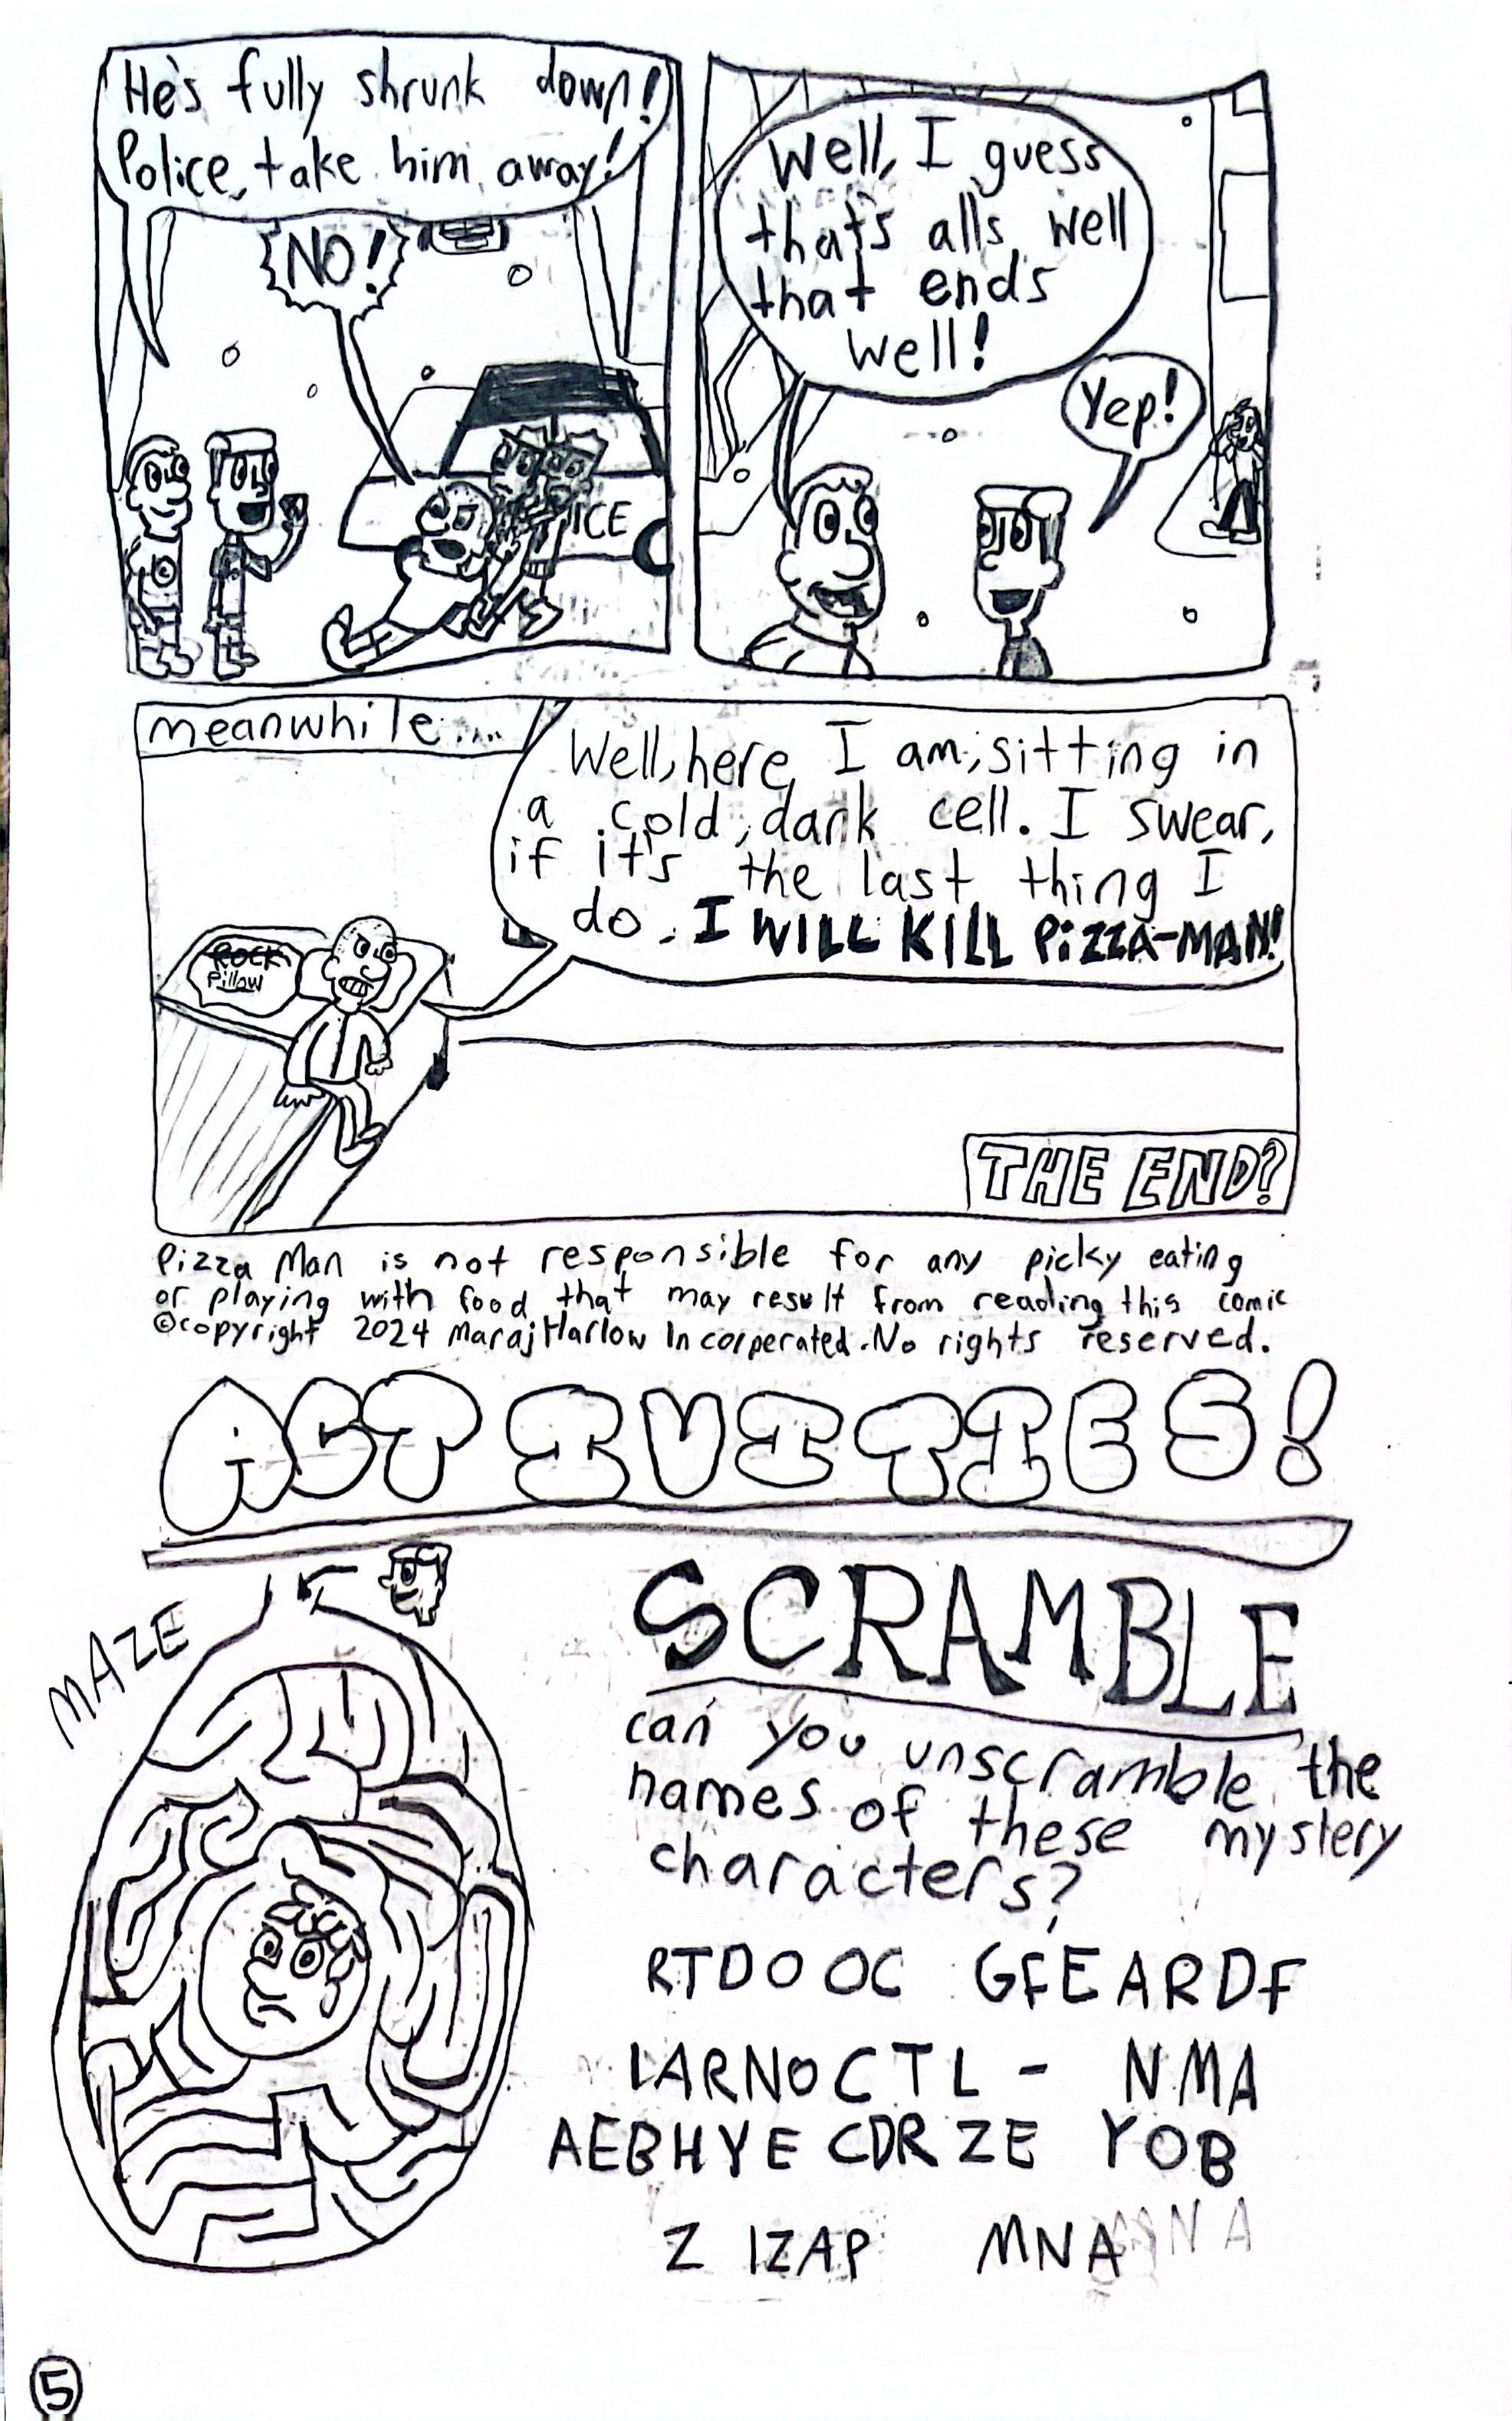 He's fully shrunk down!
Police, take him away!
NO!
ICE
Well, I guess
that's alls well
that ends
well!
Yep!
meanwhile....
Well, here I am, sitting in
a cold, dark cell. I swear,
if it's the last thing I
do. I WILL KILL PIZZA-MAN!
ROCK
Pillow
THE END?
Pizza Man is not responsible for any picky eating
or playing with food that may result from reading this comic
©copyright 2024 Maraj Harlow Incorperated. No rights reserved.
ACTIVITIES!
MAZE
SCRAMBLE
can you unscramble the
names of these mystery
characters?
RTDOOC GFEARDF
LARNOCTL - NMA
AEBHYE CDRZE YOB
Z IZAP MNA
5